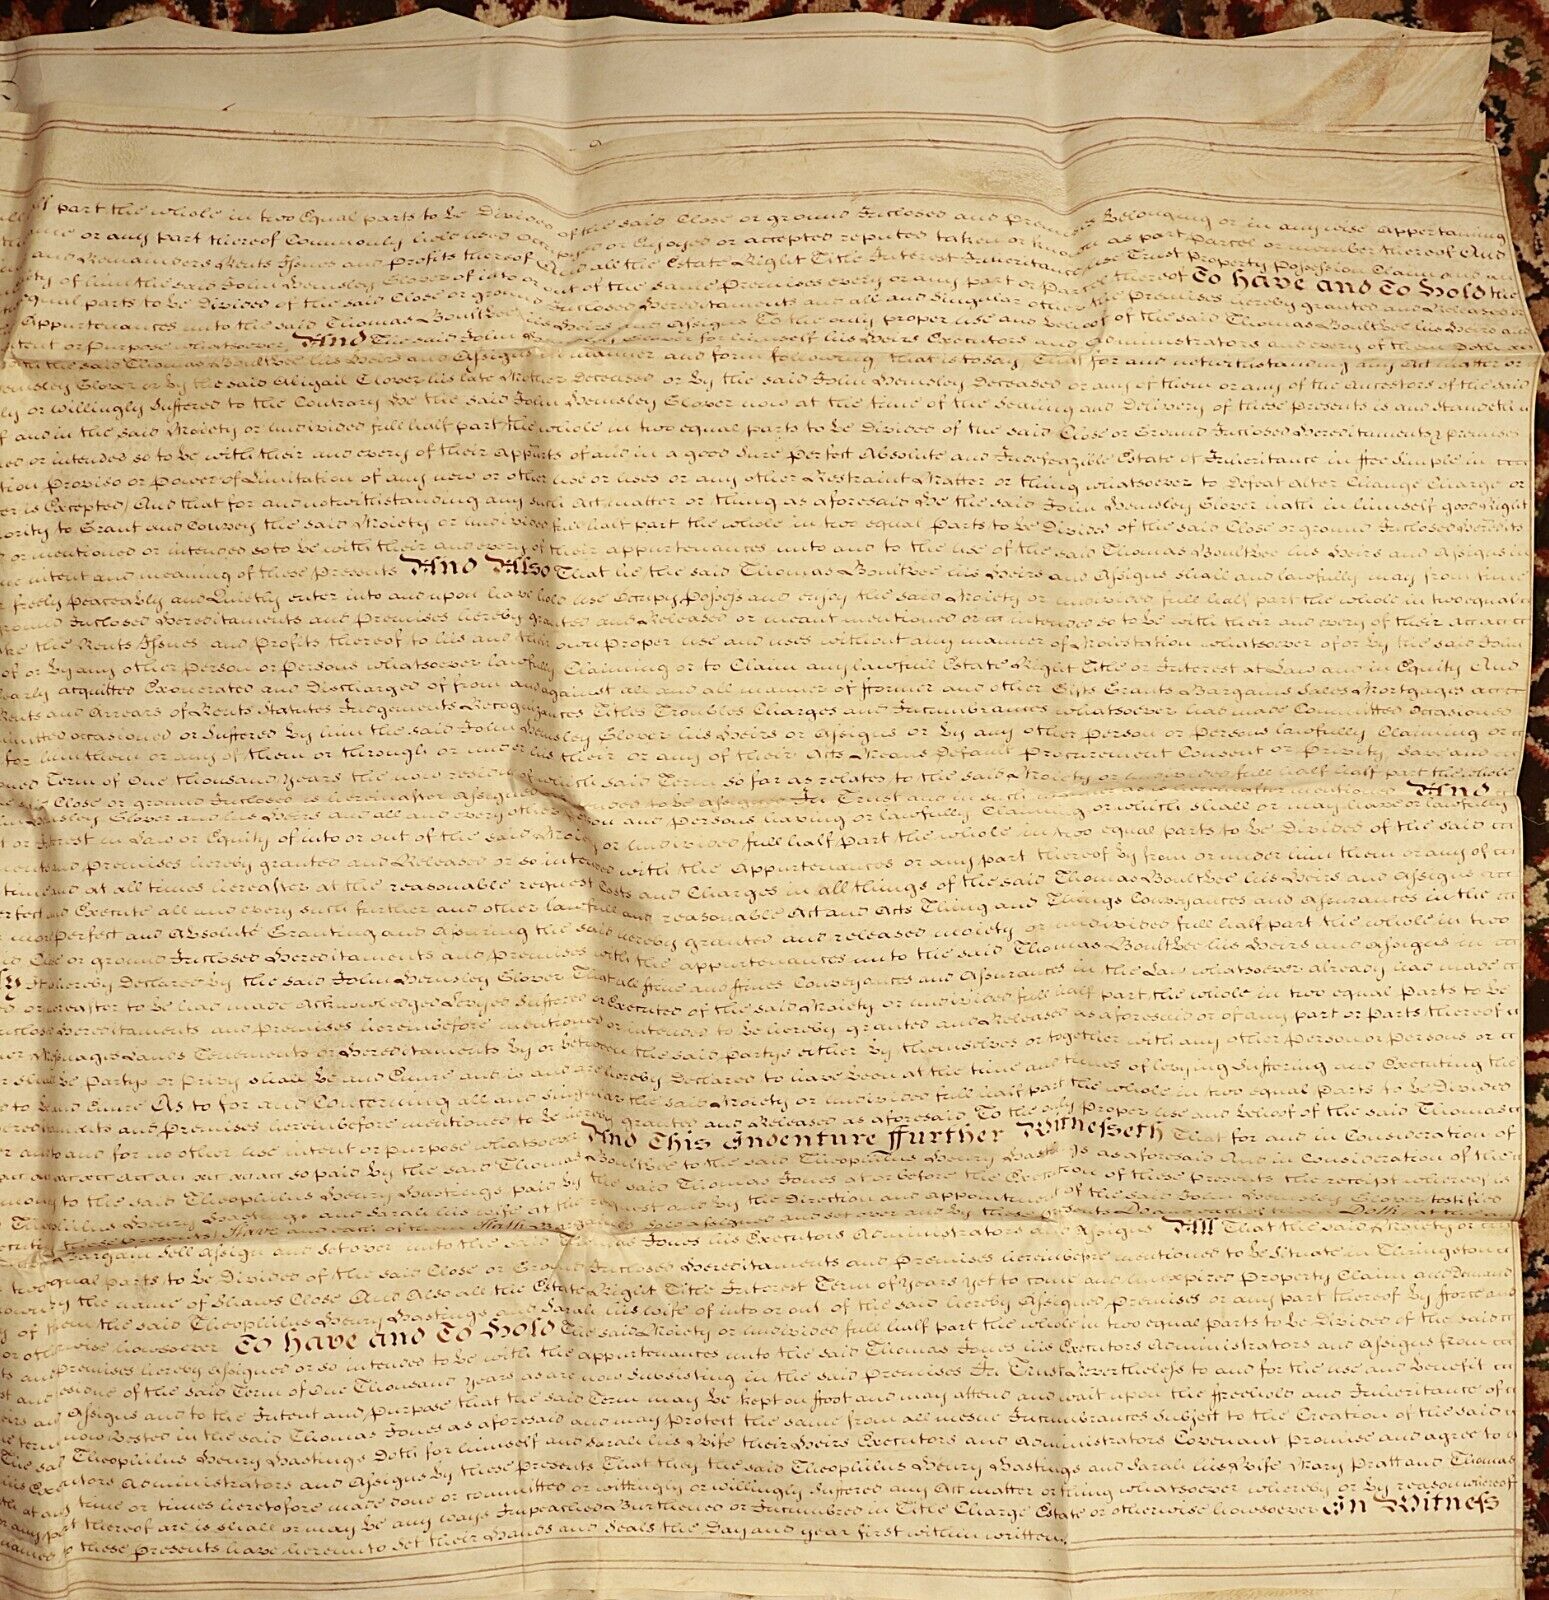 part the whole in two Equal parts to be Divided of the said Close or ground Inclosed and premises Belonging or in anywise appertaining
or any part thereof Commonly held used Occupyed or Enjoyed or accepted reputed taken or known as part Parcel or member thereof And
and Remainders Rents Issues and Profits thereof And all the Estate Right Title Interest Inheritance use Trust Property Possession Claim and
of him the said John Hemsley Glover of into or out of the same Premises every or any part or Parcel thereof To have and To Hold the
equal parts to be Divided of the said Close or ground Inclosed Hereditaments and all and Singular other the Premises hereby granted and Released
Appurtenances unto the said Thomas Boultbee his Heirs and Assigns To the only proper use and behoof of the said Thomas Boultbee his Heirs and
intent or Purpose whatsoever And The said John Hemsley Glover for himself his Heirs Executors and Administrators and every of them Doth
the said Thomas Boultbee his Heirs and Assigns in manner and form following that is to say That for and notwithstanding any Act matter or
Hemsley Glover or by the said Abigail Glover his late Mother Deceased or by the said John Hemsley Deceased or any of them or any of the Ancestors of the said
or willingly Suffered to the Contrary He the said John Hemsley Glover now at the time of the Sealing and Delivery of these Presents is and Standeth
and in the said Moiety or undivided full half part the whole in two equal parts to be Divided of the said Close or Ground Inclosed Hereditaments & premises
or intended so to be with their and every of their appurts of and in a good Sure Perfect Absolute and Indefeazible Estate of Inheritance in ffee Simple
Proviso or Power of Limitation of any new or other use or uses or any other Restraint Matter or thing whatsoever to Defeat alter Change Charge or
is Excepted) And that for and notwithstanding any such Act matter or thing as aforesaid He the said John Hemsley Glover hath in himself good Right
to Grant and Convey the said Moiety or undivided full half part the whole in two equal Parts to be Divided of the said Close or ground Inclosed Heredits
or mentioned or intended so to be with their and every of their appurtenances unto and to the use of the said Thomas Boultbee his Heirs and Assigns
intent and meaning of these Presents And Also That he the said Thomas Boultbee his Heirs and Assigns shall and lawfully may from time
freely peaceably and Quietly enter into and upon have hold use Occupy Possess and enjoy the said Moiety or undivided full half part the whole in two equal
Inclosed Hereditaments and Premises hereby granted and Released or meant mentioned or intended so to be with their and every of their
the Rents Issues and Profits thereof to his and their own Proper use and uses without any manner of Molestation whatsoever of or by the said John
of or by any other Person or Persons whatsoever lawfully Claiming or to Claim any lawfull Estate Right Title or Interest at Law and in Equity And
acquitted Exonerated and Discharged of from and against all and all manner of fformer and other Gifts Grants Bargains Sales Mortgages
Rents and Arrears of Rents Statutes Judgements Recognizances Titles Troubles Charges and Incumbrances whatsoever had made Committed Occasioned
occasioned or Suffered by him the said John Hemsley Glover his Heirs or Assigns or by any other Person or Persons lawfully Claiming or
for him them or any of them or through or under his their or any of their Acts Means Default Procurement Consent or Privity Save and
Term of One thousand Years the now residue of which said Term so far as relates to the said Moiety or undivided full half part the whole
Close or ground Inclosed is hereinafter Assigned to be Assigned In Trust and in such as hereinafter mentioned And
Glover and his Heirs and all and every other Person and Persons having or lawfully Claiming or which shall or may have or lawfully
or Interest in Law or Equity of into or out of the said Moiety or undivided full half Part the whole in two equal parts to be Divided of the said
and Premises hereby granted and Released or so intended with the Appurtenances or any part thereof by from or under him them or any of
time and at all times hereafter at the reasonable request Costs and Charges in all things of the said Thomas Boultbee his Heirs and Assigns
and Execute all and every such further and other lawfull and reasonable Act and Acts Thing and Things Conveyances and Assurances in the
more Perfect and Absolute Granting and Assuring the said hereby granted and released moiety or undivided full half part the whole in two
or ground Inclosed Hereditaments and Premises with the appurtenances unto the said Thomas Boultbee his Heirs and Assigns
hereby Declared by the said John Hemsley Glover That all ffine and ffines Conveyances and Assurances in the Law whatsoever already had made
or hereafter to be had made Acknowledged Levyed Suffered or Executed of the said Moiety or undivided full half part the whole in two equal Parts to be
Hereditaments and premises hereinbefore mentioned or intended to be hereby granted and Released as aforesaid or of any part or Parts thereof
Messuages Lands Tenements or Hereditaments by or between the said partys either by themselves or together with any other Person or Persons
be Partys or Privy shall be and Enure and is and are hereby Declared to have been at the time and times of levying Suffering and Executing the
to be and Enure As to for and Concerning all and Singular the said Moiety or undivided full half part the whole in two equal Parts to be Divided
and Premises hereinbefore mentioned to be hereby granted and Released as aforesaid To the only Proper use and behoof of the said Thomas
and for no other use intent or purpose whatsoever And This Indenture ffurther Witnesseth That for and in Consideration of
so paid by the said Thomas Boultbee to the said Theophilus Henry Hastings as aforesaid And in Consideration of the
to the said Theophilus Henry Hastings paid by the said Thomas Jones at or before the Execution of these Presents the receipt whereof is
Theophilus Henry Hastings and Sarah his wife at the request and by the Direction and appointment of the said John Hemsley Glover testified
these presents Have and each of them Hath Bargained Sold assigned and set over and by these presents Do and each of them Doth
Bargain Sell Assign and set over unto the said Thomas Jones his Executors Administrators and Assigns All That the said Moiety or
equal parts to be Divided of the said Close or Ground Inclosed Hereditaments and Premises hereinbefore mentioned to be Situate in Thringstone
by the name of Shaws Close And Also all the Estate Right Title Interest Term of Years yet to come and unexpired Property Claim and Demand
of them the said Theophilus Henry Hastings and Sarah his wife of into or out of the said hereby Assigned Premises or any part thereof by fforce and
howsoever To have and To Hold The said Moiety or undivided full half part the whole in two equal Parts to be Divided of the said
Premises hereby Assigned or so intended to be with the appurtenances unto the said Thomas Jones his Executors Administrators and Assigns from
of the said Term of One Thousand Years as are now Subsisting in the said Premises In Trust Nevertheless to and for the use and Benefit
Assigns and to the Intent and Purpose that the said Term may be kept on ffoot and may attend and wait upon the ffreehold and Inheritance of
now Vested in the said Thomas Jones as aforesaid and may Protect the same from all mesne Incumbrances Subject to the Creation of the said
Theophilus Henry Hastings Doth for himself and Sarah his Wife their Heirs Executors and Administrators Covenant Promise and agree to
Administrators and Assigns by these Presents That they the said Theophilus Henry Hastings and Sarah his Wife Mary Pratt and Thomas
time or times heretofore made done or committed or wittingly or willingly Suffered any Act matter or thing whatsoever whereby or by reason whereof
thereof are is shall or may be any ways Impeached Burthened or Incumbred in Title Charge Estate or otherwise howsoever In Witness
these Presents have hereunto Set their Hands and Seals the Day and year first within written.